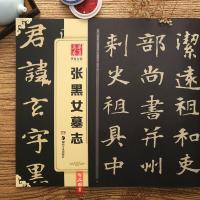 君諱玄字黑
张黑女墓志
潔遠祖和吏
部尚書并州
刺史祖具中